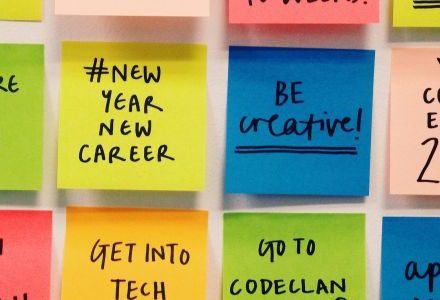 10 WEEKS!
#NEW
YEAR
NEW
CAREER
BE
creative!
GET INTO
TECH
GO TO
CODECLAN